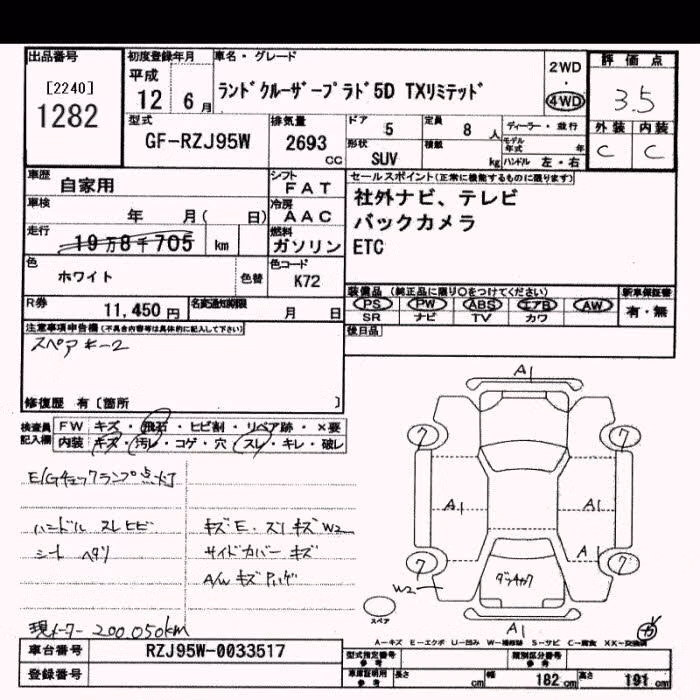 出品番号
[2240]
1282
初度登録年月
平成
12 6月
車名・グレード
ランドクルーザープラド5D TXリミテッド
2WD
・
4WD
評価点
3.5
外装 内装
C C
型式
GF-RZJ95W
排気量
2693
CC
ドア 5
定員 8 人
形状 SUV
積載 kg
ディーラー・並行
モデル年式 年
ハンドル 左・右
車歴
自家用
シフト
FAT
車検
年 月( 日)
冷房
AAC
走行
19万8千705 km
燃料
ガソリン
色
ホワイト
色替
色コード
K72
R券 11,450円
名変通知期限
月 日
セールスポイント(正常に機能するものに限ります)
社外ナビ、テレビ
バックカメラ
ETC
装備品 (純正品に限り○をつけてください)
PS PW ABS エアB AW
SR ナビ TV カワ
新車保証書
有・無
後日品
注意事項申告欄(不具合内容等は具体的に記入して下さい)
スペアキー2
修復歴 有〔箇所 〕
検査員記入欄
FW キズ・飛石・ヒビ割・リペア跡・×要
内装 キズ・汚レ・コゲ・穴・スレ・キレ・破レ
E/Gチェックランプ点灯
ハンドル スレ ヒビ
シート ヘタリ
キズE・スリキズW2
サイドカバー キズ
A/W キズ
現メーター 200,050km
A1
7 7
A1 A1
A1
7 7
W2
A1
スペア
A-キズ E-エクボ U-凹み W-補修跡 S-サビ C-腐食 XX-交換済
車台番号 RZJ95W-0033517
登録番号
型式指定番号
参考
類別区分番号
参考
車庫証明用
参考
長さ cm 幅 182cm 高さ 191cm